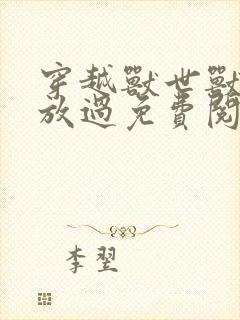 穿越獸世獸
放過免費閱
李翌